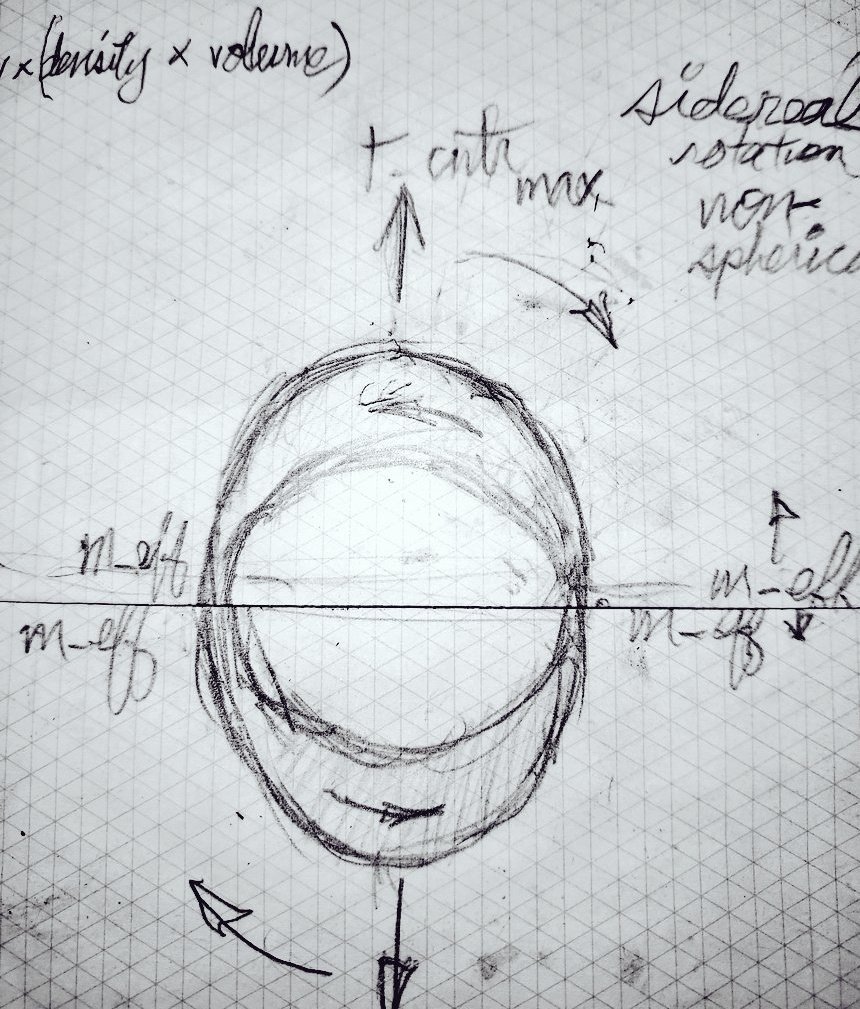 x (density x volume)
sidereal
rotation
non-
spherica
max
m-eff
m-eff
m-eff
m-eff